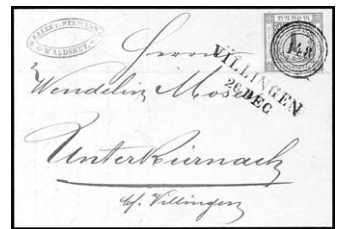 WALDSHUT.
Herrn
VILLINGEN
26 DEC
148
Wendelin Moser
Unterkürnach
b/. Villingen